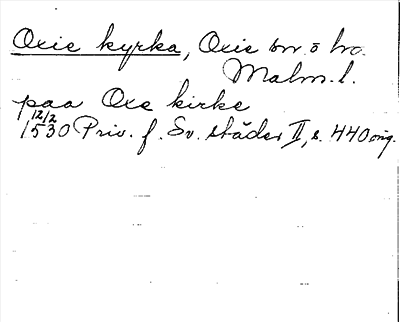 Oxie kyrka, Oxie sn. o hd.
Malm. l.
paa Oxe kirke
12/2
1530 Priv. f. Sv. städer II, s. 440 orig.